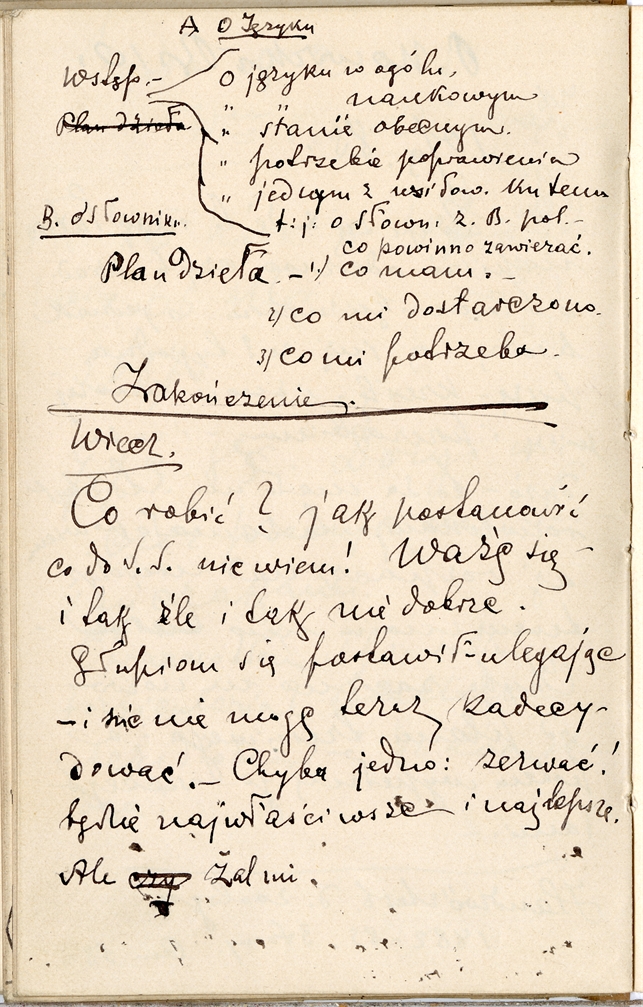 A O Języku
Wstęp. – O języku w ogóle,
" " naukowym
Plan dzieła " stanie obecnym.
" potrzebie poprawienia
" jednym z ku temu
B. O słowniku.
t: j: o słown: z. B. pol. –
co powinno zawierać.
Plan dzieła. – 1) co mam. –
2) co mi dostarczono.
3) co mi potrzeba.
Zakończenie.
Wiecz.
Co robić? jak postanowić
co do S. S. nie wiem! Ważę się –
i tak źle i tak nie dobrze.
Głupiom się postawił – ulegając
– i nie mogę teraz zadecy-
dować. – Chyba jedno: zerwać!
będzie najwłaściwsze i najlepsze.
Ale czy Żal mi.